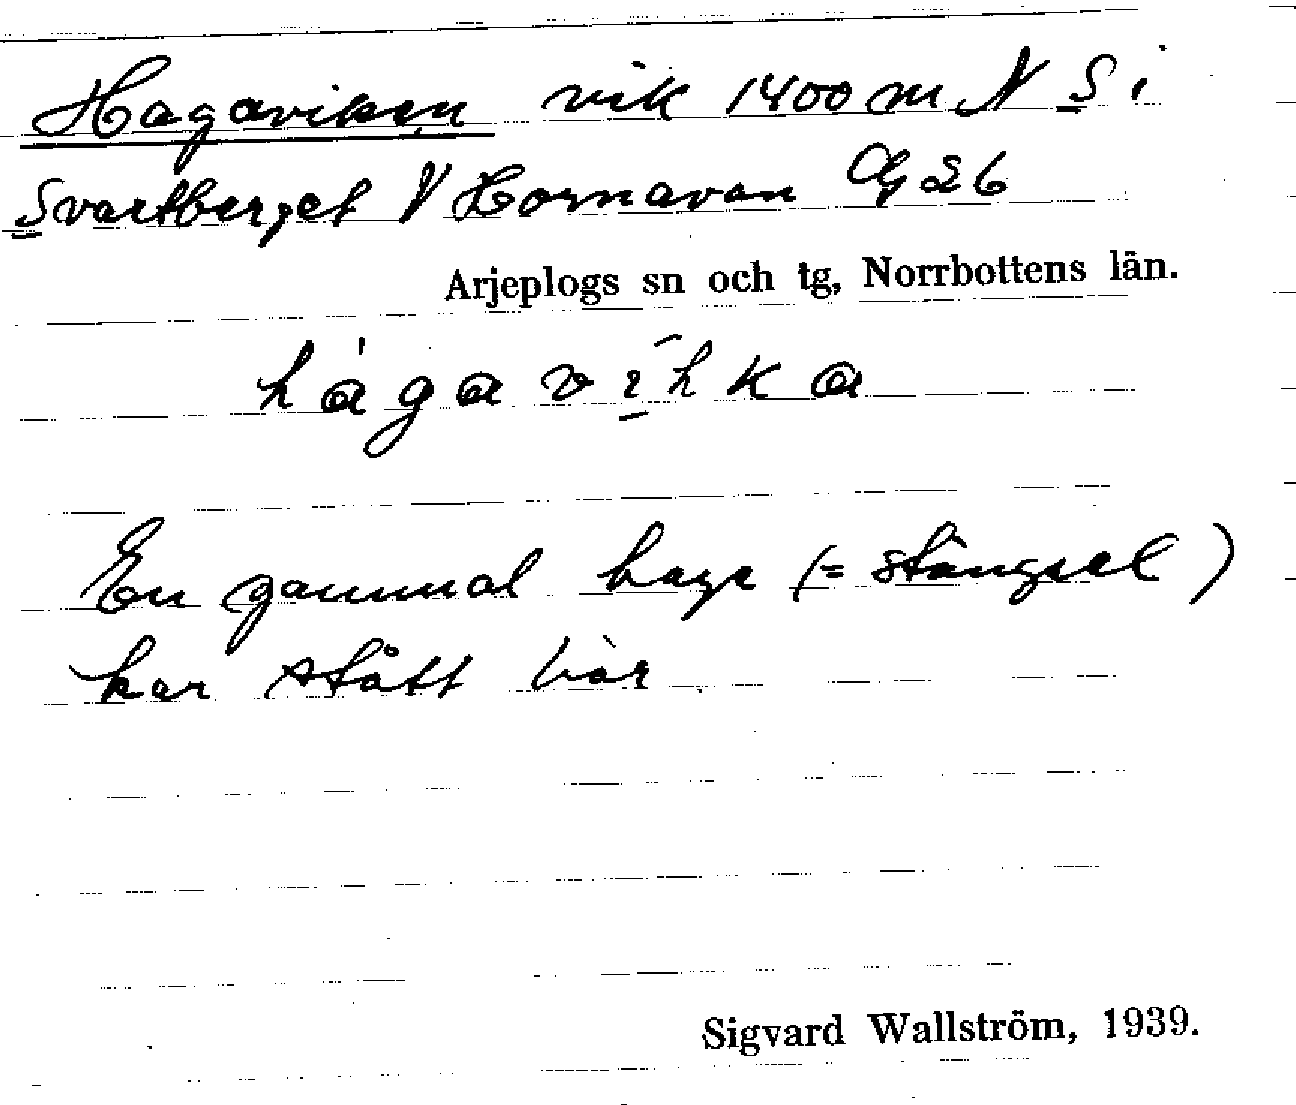 Hagaviken vik 1400 m N S i
Svartberget V Hornavan G 26
Arjeplogs sn och tg, Norrbottens län.
hágavi̱hka
En gammal hage (= stängsel)
har stått här
Sigvard Wallström, 1939.